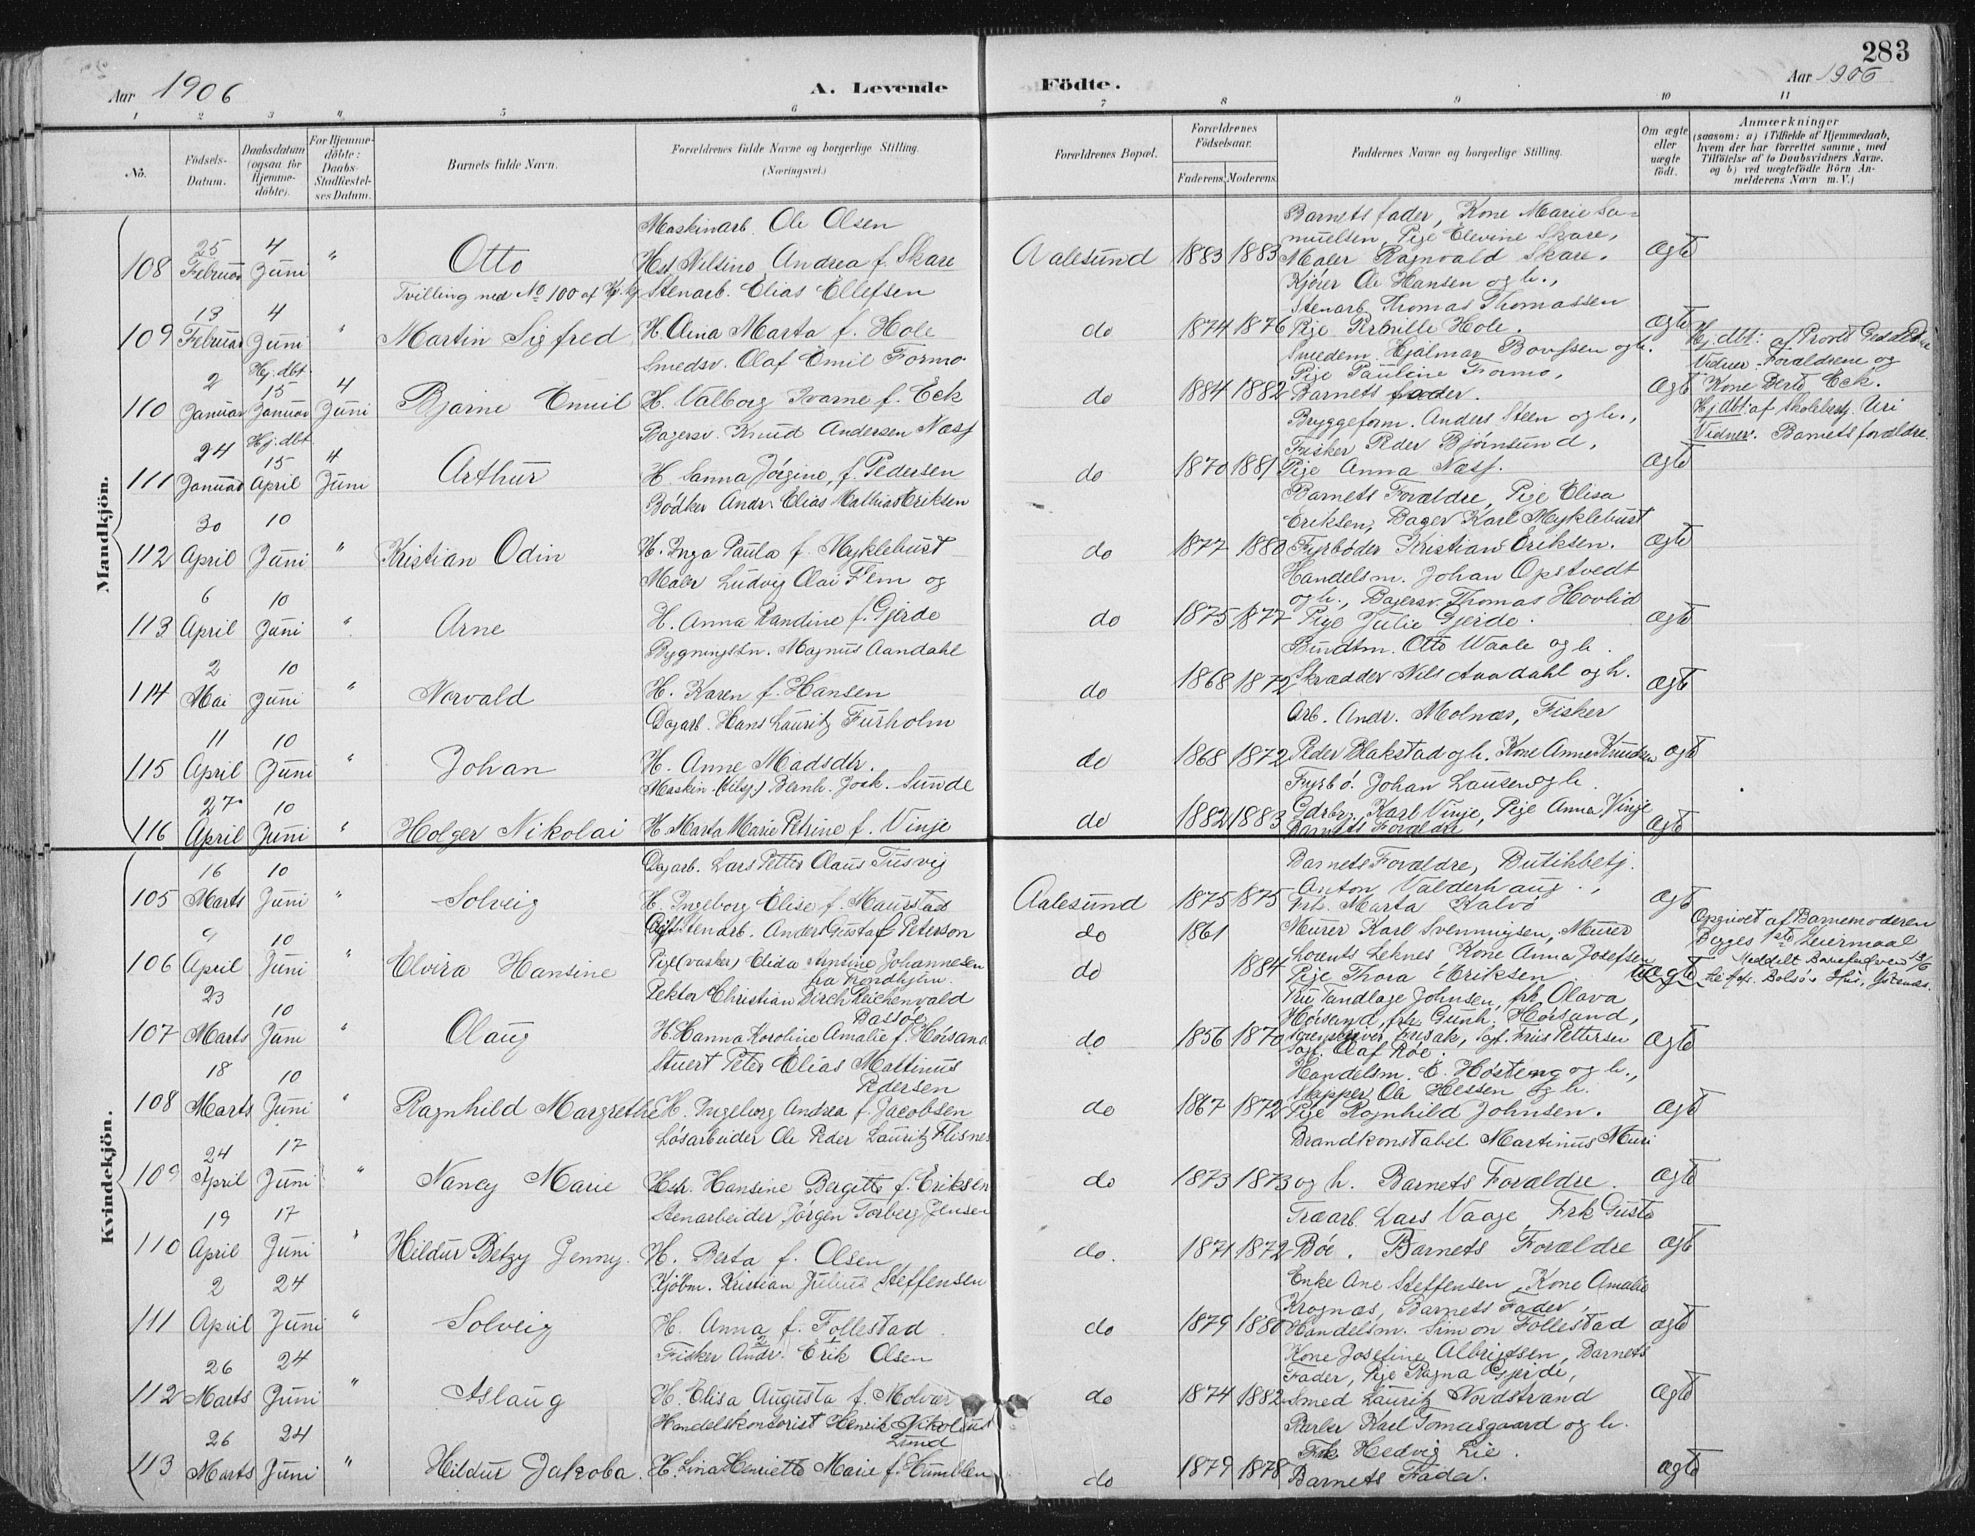 283
Aar 1906
A. Levende
Födte.
Aar 1906
1 2 3 4 5 6 7 8 9 10 11
No.
Födsels-Datum.
Daabsdatum (ogsaa for Hjemmedöbte).
For Hjemmedöbte: Daabs-Stadfæstelses Datum.
Barnets fulde Navn.
Forældrenes fulde Navne og borgerlige Stilling. (Næringsvei.)
Forældrenes Bopæl.
Forældrenes Födselsaar.
Faderens. Moderens.
Faddernes Navne og borgerlige Stilling.
Om ægte eller uægte födt.
Anmærkninger
(saasom: a) i Tilfælde af Hjemmedaab, hvem der har forrettet samme, med Tilföielse af to Daabsvidners Navne. og b) ved uægtefödte Börn Anmelderens Navn m. V.)
Mandkjön.
Maskinarb. Ole Olsen
Barnets fader, Kone Marie Sa-
muelsen, Pige Elevine Skare,
108 25 Februar 4 Juni " Otto Hst. Nilsine Andrea f. Skare Aalesund 1883 1883 Maler Ragnvald Skare. Ægte
Tvilling med No 100 af
Stenarb. Elias Ellefsen
Kjører Ole Hansen og h.,
Stenarb Thomas Thomassen
109 13 Februar 4 Juni " Martin Sigfred H. Anna Marta f. Hole do 1874 1876 Pige Pernille Hole. Ægte
Smedsv. Olaf Emil Formo
Smedem. Hjalmar og h.
Pige Pauline Formo,
110 2 Januar Hj. dbt 15 Januar 4 Juni Bjarne Emil H. Valborg Ivarne f. Eck do 1884 1882 Barnets fader. Ægte
Hj. dbt: af Provst
Vidner: Forældrene og
Kone Berte Eck.
Bagersv. Knud Andersen Næsj
Bryggeform. Anders Steen og h.,
Fisker Peder Bjørnsund,
111 24 Januar Hj. dbt 15 April 4 Juni Arthur H. Sanna Jørgine f. Pedersen do 1870 1881 Pige Anna Næsj. Ægte
Hj. dbt: af Skolebest. Uri
Vidner. Barnets forældre.
Bødker Andr. Elias Mathias Eriksen
Barnets Forældre, Pige Elisa
Eriksen, Bager Karl Myklebust
112 30 April 10 Juni " Kristian Odin H. Inga Paula f. Myklebust do 1877 1880 Fyrbøder Kristian Eriksen. Ægte
Maler Ludvig Olai Flem og
Handelsm. Johan Opstvedt
og h., Bagersv. Thomas Hovlid
113 6 April 10 Juni " Arne H. Anna Randine f. Gjerde do 1875 1877 Pige Julie Gjerde. Ægte
Bygningssn. Magnus Aandahl
Bundtm. Otto Waale og h.
114 2 Mai 10 Juni " Norvald H. Karen f. Hansen do 1868 1872 Skrædder Nils Aandahl og h. Ægte
Dagarb. Hans Lauritz Furholm
Arb. Andr. Molnæs, Fisker
115 11 April 10 Juni " Johan H. Anne Madsdtr. do 1868 1872 Peder Blakstad og h. Kone Anne Knudsen Ægte
Maskin. Bernh. Joak. Sunde
Fyrbø. Johan Lausen og h.
116 27 April 10 Juni " Holger Nikolai H. Marta Marie Petrine f. Vinje do 1882 1883 Gdrbr. Karl Vinje, Pige Anna Vinje Ægte
Barnets Forældre
Kvindekjön.
Dagarb. Lars Petter Olaus Tusvig
Barnets Forældre, Butikbetj.
Anton Valderhaug.,
105 16 Marts 10 Juni " Solveig H. Ingeborg Elise f. Maurstad Aalesund 1875 1875 Frk. Marta Kalvø Ægte
Gift Stenarb. Anders Gustaf Peterson do 1861 Murer Karl Svenningsen, Murer
Lorents Leknes Kone Anna Josefsen
106 9 April 10 Juni " Elvira Hansine Pige (vasker) Elida Antine Johannesen do 1884 Pige Thora Eriksen uægte
fra Trondhjem.
Opgivet af Barnemoderen
Begges 1ste Leiermaal
Rektor Christian Birch Reichenvald
Bassøe
Fru Tandlæge Johnsen, frk Olava
Hørsand, frk Gunh. Hørsand,
107 23 Marts 10 Juni " Olaug H. Hanna Karoline Amalie f. Hørsand do 1856 1870 Sorenskriver Brusak, Sagf. Friis Pettersen Ægte
Sagf. Olaf Røe.
Stuert Peter Elias Mattinus
Pedersen
Handelsm. E. Høsteng og h.,
Skipper Ole Hessen og h.
108 18 Marts 10 Juni " Ragnhild Margrethe H. Ingeborg Andrea f. Jacobsen do 1867 1872 Pige Ragnhild Johnsen. Ægte
Løsarbeider Ole Peder Lauritz Flisnes
Brandkonstabel Martinus Muri
109 24 April 17 Juni " Nancy Marie Hstr. Hansine Bergitte f. Eriksen do 1873 1873 og h. Barnets Forældre. Ægte
Stenarbeider Jørgen Torberg Jensen
Træarb. Lars Vaage, Frk Gusta
110 19 April 17 Juni " Hildur Betzy Jenny. H. Berta f. Olsen do. 1871 1872 Bøe. Barnets Forældre Ægt
Kjøbm. Kristian Julius Steffensen
Enke Ane Steffensen, Kone Amalie
Krognæs, Barnets Fader,
111 2 April 24 Juni " Solveig H. Anna f. Follestad do 1879 1880 Handelsm. Simon Follestad Ægte
Fisker Andr. Erik Olsen
Kone Josefine Albrigtsen, Barnets
Fader, Pige Ragna Gjerde,
112 26 Marts 24 Juni " Aslaug H. Elisa Augusta f. Molvær do 1874 1882 Smed Lauritz Nordstrand Ægte
Handelskontorist Henrik Nikolaus
Lund
Barber Karl Tomasgaard og h.
Frk Hedvig Lie.
113 26 Marts 24 Juni " Hildur Jakoba. H. Lina Henriette Marie f. Humblen do 1879 1878 Barnets Fader. Ægte